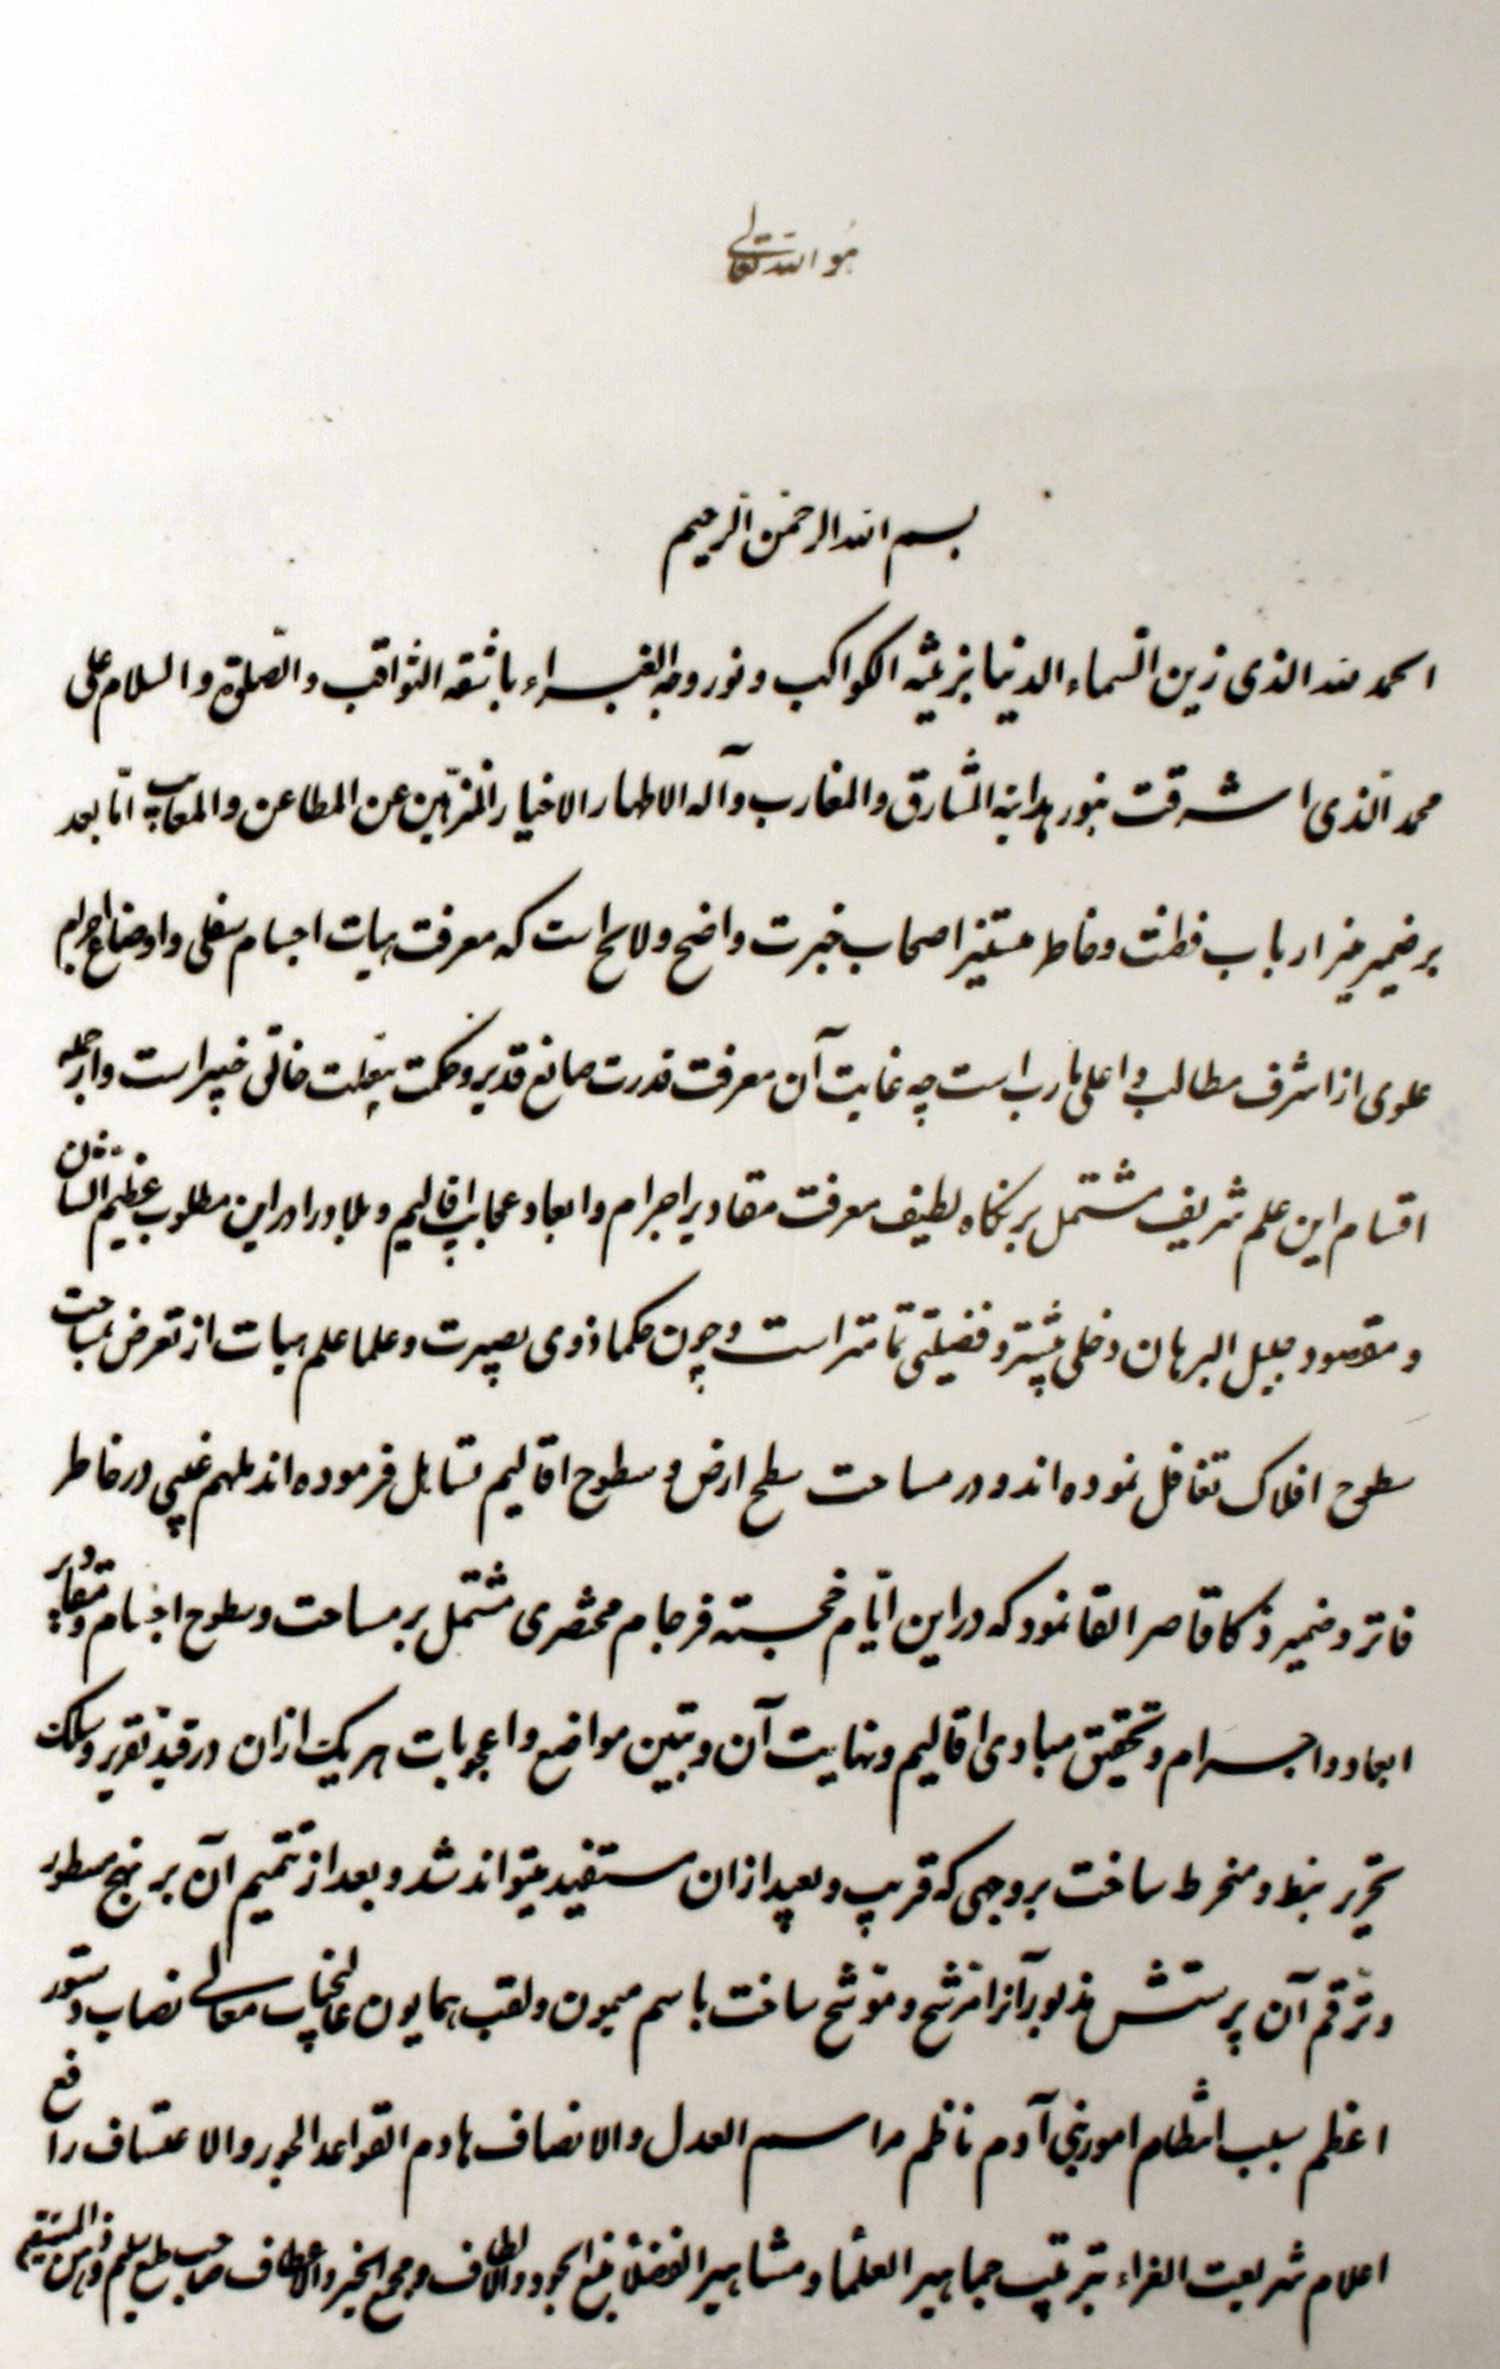 هو الله تعالی
بسم الله الرحمن الرحیم
الحمد لله الذی زین السماء الدنیا بزینة الکواکب و نور وجه الغبراء باشقه الثواقب والصلوة والسلام علی
محمد الذی اشرقت بنور هدایته المشارق والمغارب وآله الاطهار الاخیار المنزهین عن المطاعن والمعایب اما بعد
بر ضمیر منیر ارباب فطنت و خاطر مستنیر اصحاب خبرت واضح و لایح است که معرفت هیات اجسام سفلی و اوضاع اجرام
علوی از اشرف مطالب و اعلی مارب است چه غایت آن معرفت قدرت صانع قدیر و حکمت خالق خبیر است و از جمله
اقسام این علم شریف مشتمل بر نکاه لطیف معرفت مقادیر اجرام و ابعاد و عجایب اقالیم و بلاد را در این مطلوب عظیم الشان
و مقصود جلیل البرهان دخلی بیشتر و فضیلتی تمامتر است و چون حکما ذوی بصیرت و علما علم هیات از تعرض بمساحت
سطوح افلاک تغافل نموده اند و در مساحت سطح ارض و سطوح اقالیم تساهل فرموده اند ملهم غیبی در خاطر
فاتر و ضمیر ذکا قاصر القا نمود که در این ایام خجسته فرجام مختصری مشتمل بر مساحت و سطوح اجسام و مقادیر
ابعاد و اجرام و تحقیق مبادی اقالیم و نهایت آن و تبین مواضع و اعجوبات هر یک ازان در قید تقریر و سلک
تحریر منخرط ساخت بر وجهی که قریب و بعید ازان مستفید میتواند شد و بعد از تتمیم آن بر نهج مسطور
و ترقم آن مذبور آنرا مترشح و موشح ساخت باسم میمون و لقب همایون عالیجناب معالی نصاب دستور
اعظم سبب انتظام امور بنی آدم ناظم مراسم العدل والانصاف هادم القواعد الجور والاعتساف رافع
اعلام شریعت الغراء بترتیب جماهیر العلما و مشاهیر الفضلا منبع الجود والالطاف و مجمع الخیر والاعطاف صاحب طبع سلیم و ذهن المستقیم